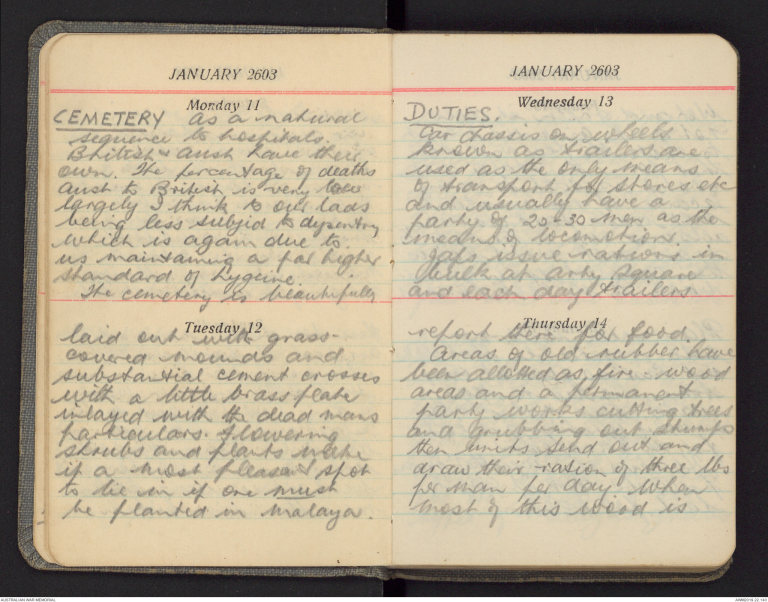 JANUARY 2603
Monday 11
CEMETERY as a natural
sequence to hospitals.
British & Aust have their
own. The percentage of deaths
Aust to British is very low
largely I think to our lads
being less subjid to dysentry
which is again due to
us maintaining a far higher
standard of hygeine.
The cemetery is beautifully
Tuesday 12
laid out with grass-
covered mounds and
substantial cement crosses
with a little brass plate
inlayed with the dead mans
particulars. Flowering
shrubs and plants make
it a most pleasant spot
to lie in if one must
be planted in Malaya.
JANUARY 2603
Wednesday 13
DUTIES.
Car chassis on wheels
known as trailers are
used as the only means
of transport for stores etc
and usually have a
party of 20-30 men as the
means of locomotion.
Japs issue rations in
bulk at Arty Square
and each day trailers
Thursday 14
report there for food.
Areas of old rubber have
been allotted as fire-wood
areas and a permanent
party works cutting trees
and grubbing out stumps
then units send out and
draw their ration of three lbs
per man per day. When
most of this wood is
AUSTRALIAN WAR MEMORIAL